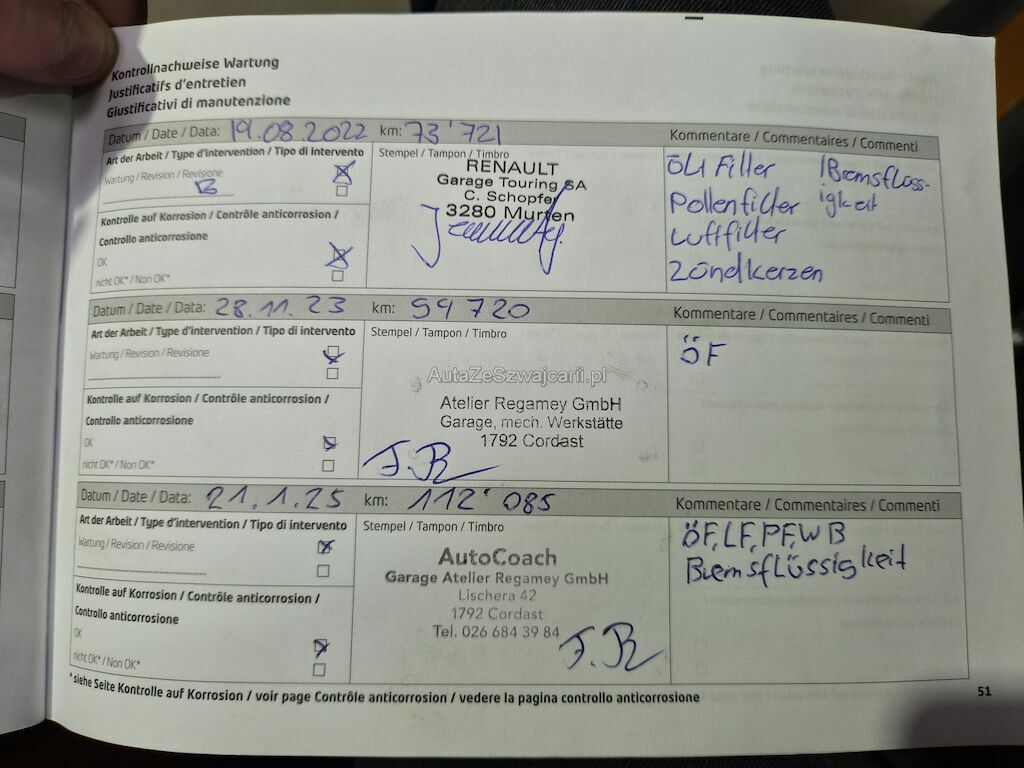 Kontrollnachweise Wartung
Justificatifs d'entretien
Giustificativi di manutenzione
Datum / Date / Data: 19.08.2022 km: 73'721
Kommentare / Commentaires / Commenti
Art der Arbeit / Type d'intervention / Tipo di intervento
Wartung / Revision / Revisione
B
Kontrolle auf Korrosion / Contrôle anticorrosion /
Controllo anticorrosione
OK
nicht OK* / Non OK*
Stempel / Tampon / Timbro
RENAULT
Garage Touring SA
C. Schopfer
3280 Murten
Öl Filter /Bremsflüss-
Pollenfilter igkeit
Luftfilter
Zündkerzen
Datum / Date / Data: 28.11.23 km: 99 720
Kommentare / Commentaires / Commenti
Art der Arbeit / Type d'intervention / Tipo di intervento
Wartung / Revision / Revisione
Kontrolle auf Korrosion / Contrôle anticorrosion /
Controllo anticorrosione
OK
nicht OK* / Non OK*
Stempel / Tampon / Timbro
AutaZeSzwajcarii.pl
Atelier Regamey GmbH
Garage, mech. Werkstätte
1792 Cordast
F.R
ÖF
Datum / Date / Data: 21.1.25 km: 112'085
Kommentare / Commentaires / Commenti
Art der Arbeit / Type d'intervention / Tipo di intervento
Wartung / Revision / Revisione
Kontrolle auf Korrosion / Contrôle anticorrosion /
Controllo anticorrosione
OK
nicht OK* / Non OK*
Stempel / Tampon / Timbro
AutoCoach
Garage Atelier Regamey GmbH
Lischera 42
1792 Cordast
Tel. 026 684 39 84
F.R
ÖF, LF, PF, WB
Bremsflüssigkeit
* siehe Seite Kontrolle auf Korrosion / voir page Contrôle anticorrosion / vedere la pagina controllo anticorrosione
51